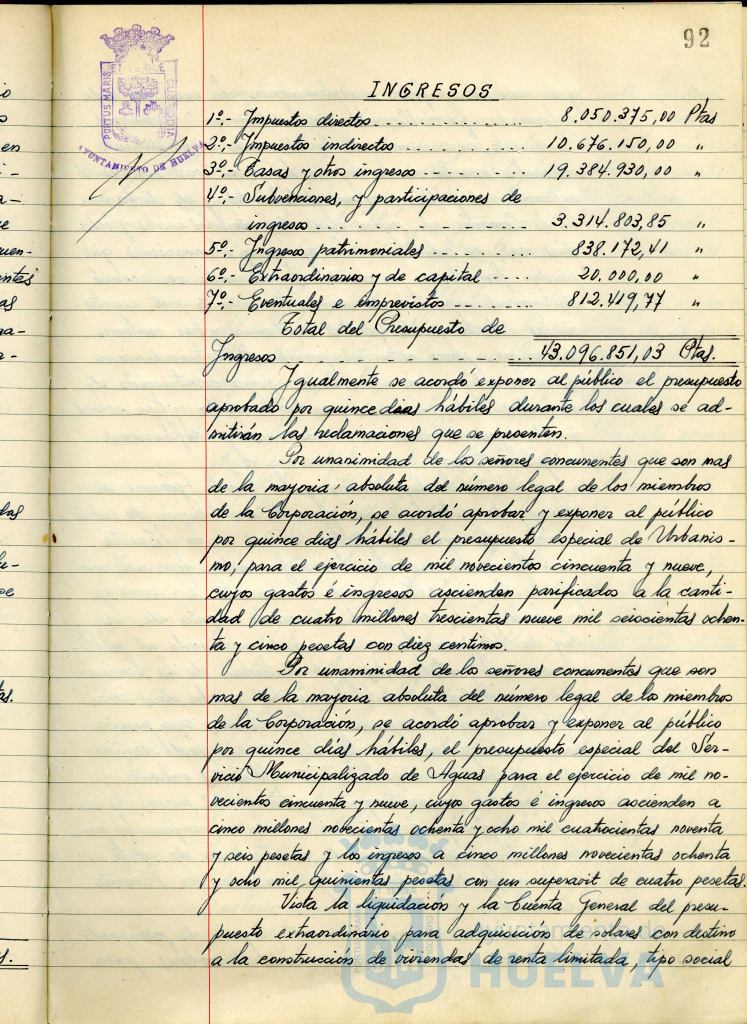 92
PORTUS MARIS
ET TERRAE
CUSTODIA
AYUNTAMIENTO DE HUELVA
INGRESOS
1º.- Impuestos directos .............. 8.050.375,00 Ptas
2º.- Impuestos indirectos ............ 10.676.150,00 "
3º.- Tasas y otros ingresos ........ 19.384.930,00 "
4º.- Subvenciones, y participaciones de
ingresos ............ 3.314.803,85 "
5º.- Ingresos patrimoniales ........ 838.172,41 "
6º.- Extraordinario y de capital .... 20.000,00 "
7º.- Eventuales e imprevistos ........ 812.419,77 "
Total del Presupuesto de
Ingresos ............ 43.096.851,03 Ptas.
Igualmente se acordó exponer al público el presupuesto
aprobado por quince dias hábiles durante los cuales se ad-
mitirán las reclamaciones que se presenten.
Por unanimidad de los señores concurrentes que son mas
de la mayoria absoluta del número legal de los miembros
de la Corporación, se acordó aprobar y exponer al público
por quince dias hábiles el presupuesto especial de Urbanis-
mo, para el ejercicio de mil novecientos cincuenta y nueve,
cuyos gastos é ingresos ascienden parificados a la canti-
dad de cuatro millones trescientas nueve mil seiscientas ochen-
ta y cinco pesetas con diez centimos.
Por unanimidad de los señores concurrentes que son
mas de la mayoria absoluta del número legal de los miembros
de la Corporación, se acordó aprobar y exponer al público
por quince días hábiles, el presupuesto especial del Ser-
vicio Municipalizado de Aguas para el ejercicio de mil no-
vecientos cincuenta y nueve, cuyos gastos é ingresos ascienden a
cinco millones novecientas ochenta y ocho mil cuatrocientas noventa
y seis pesetas y los ingresos a cinco millones novecientas ochenta
y ocho mil quinientas pesetas con un superavit de cuatro pesetas.
Vista la liquidación y la Cuenta General del presu-
puesto extraordinario para adquisición de solares con destino
a la construcción de viviendas de renta limitada, tipo social
HUELVA